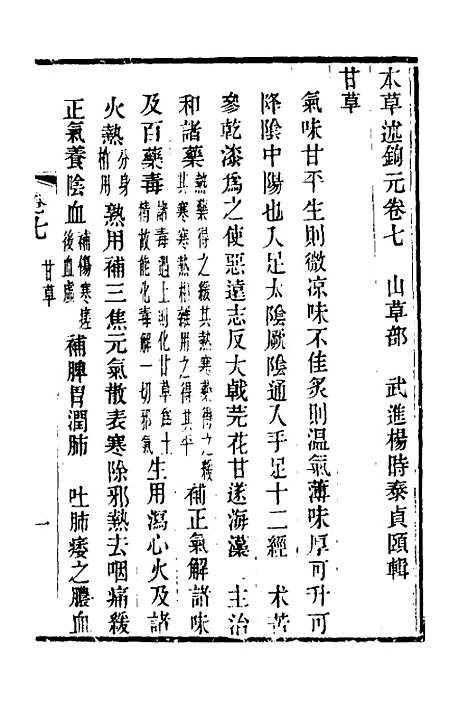 本草述鉤元卷七　山草部　武進楊時泰貞頤輯
甘草
氣味甘平生則微凉味不佳炙則温氣薄味厚可升可
降陰中陽也入足太陰厥陰通入手足十二經　朮苦
參乾漆爲之使惡遠志反大戟芫花甘遂海藻　主治
和諸藥熱藥得之緩其熱寒藥得之緩其寒寒熱相雜用之得其平　補正氣解諸味
及百藥毒諸毒遇土則化甘草爲土精故能化毒解一切邪氣生用瀉心火及諸
火熱分身梢用熟用補三焦元氣散表寒除邪熱去咽痛緩
正氣養陰血補傷寒瘥後血虛補脾胃潤肺　吐肺痿之膿血
卷七　甘草　一